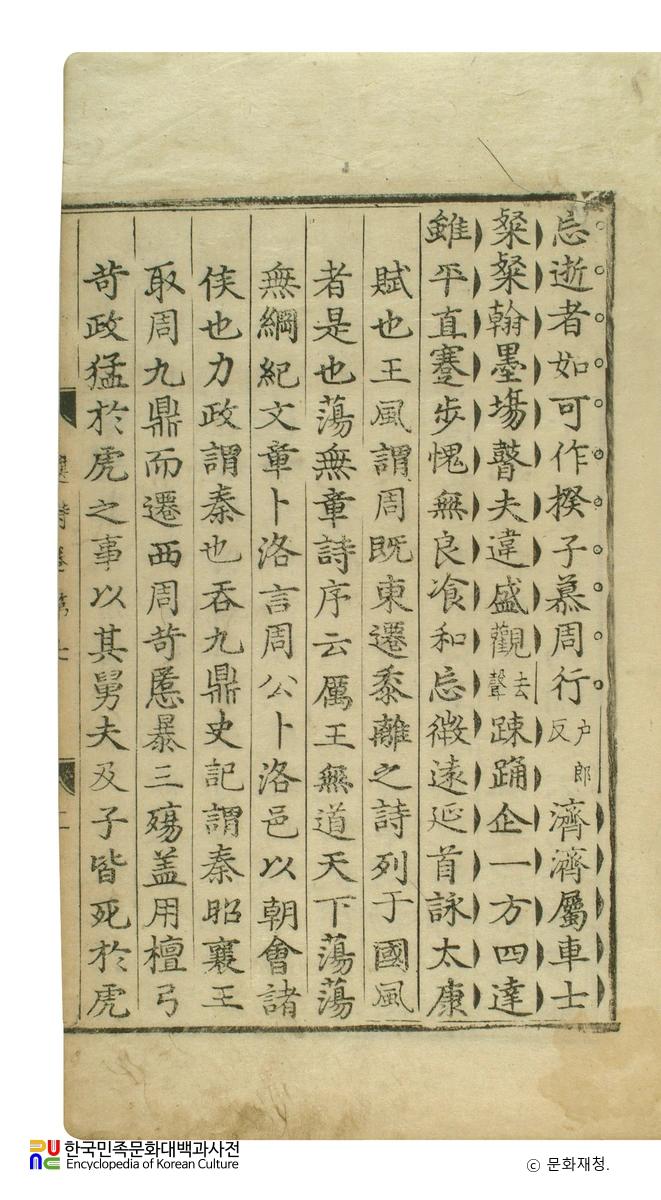 忘逝者如可作揆子慕周行戶郎反濟濟屬車士
粲粲翰墨場瞽夫違盛觀去聲踈踊企一方四達
雖平直蹇步愧無良飡和忘微遠延首詠太康
賦也王風謂周既東遷黍離之詩列于國風
者是也蕩無章詩序云厲王無道天下蕩蕩
無綱紀文章卜洛言周公卜洛邑以朝會諸
侯也力政謂秦也呑九鼎史記謂秦昭襄王
取周九鼎而遷西周苛慝暴三殤盖用檀弓
苛政猛於虎之事以其舅夫及子皆死於虎
選詩卷第七
한국민족문화대백과사전
Encyclopedia of Korean Culture
© 문화재청.